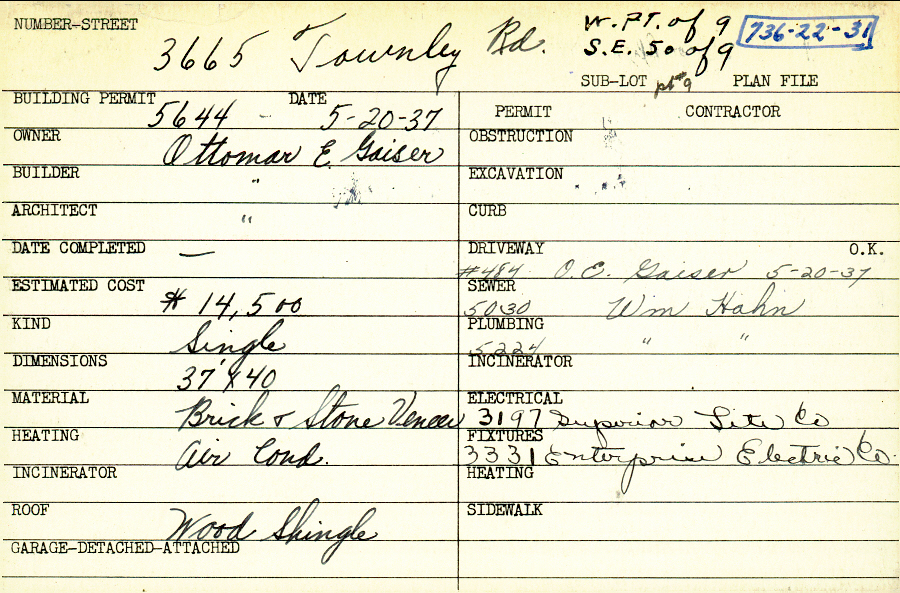 NUMBER-STREET 3665 Townley Rd. W. PT. of 9 736-22-31
S.E. 50 of 9
SUB-LOT pt # 9 PLAN FILE
BUILDING PERMIT 5644 - DATE 5-20-37
OWNER Ottomar E. Gaiser
BUILDER "
ARCHITECT "
DATE COMPLETED —
ESTIMATED COST # 14,500
KIND Single
DIMENSIONS 37' X 40
MATERIAL Brick & Stone Veneer
HEATING Air Cond.
INCINERATOR
ROOF Wood Shingle
GARAGE-DETACHED-ATTACHED
PERMIT CONTRACTOR
OBSTRUCTION
EXCAVATION
CURB
DRIVEWAY O.K.
#484 O.E. Gaiser 5-20-37
SEWER
5030 Wm Hahn
PLUMBING
5224 " "
INCINERATOR
ELECTRICAL
3197 Superior Lite Co
FIXTURES
3331 Enterprise Electric Co.
HEATING
SIDEWALK